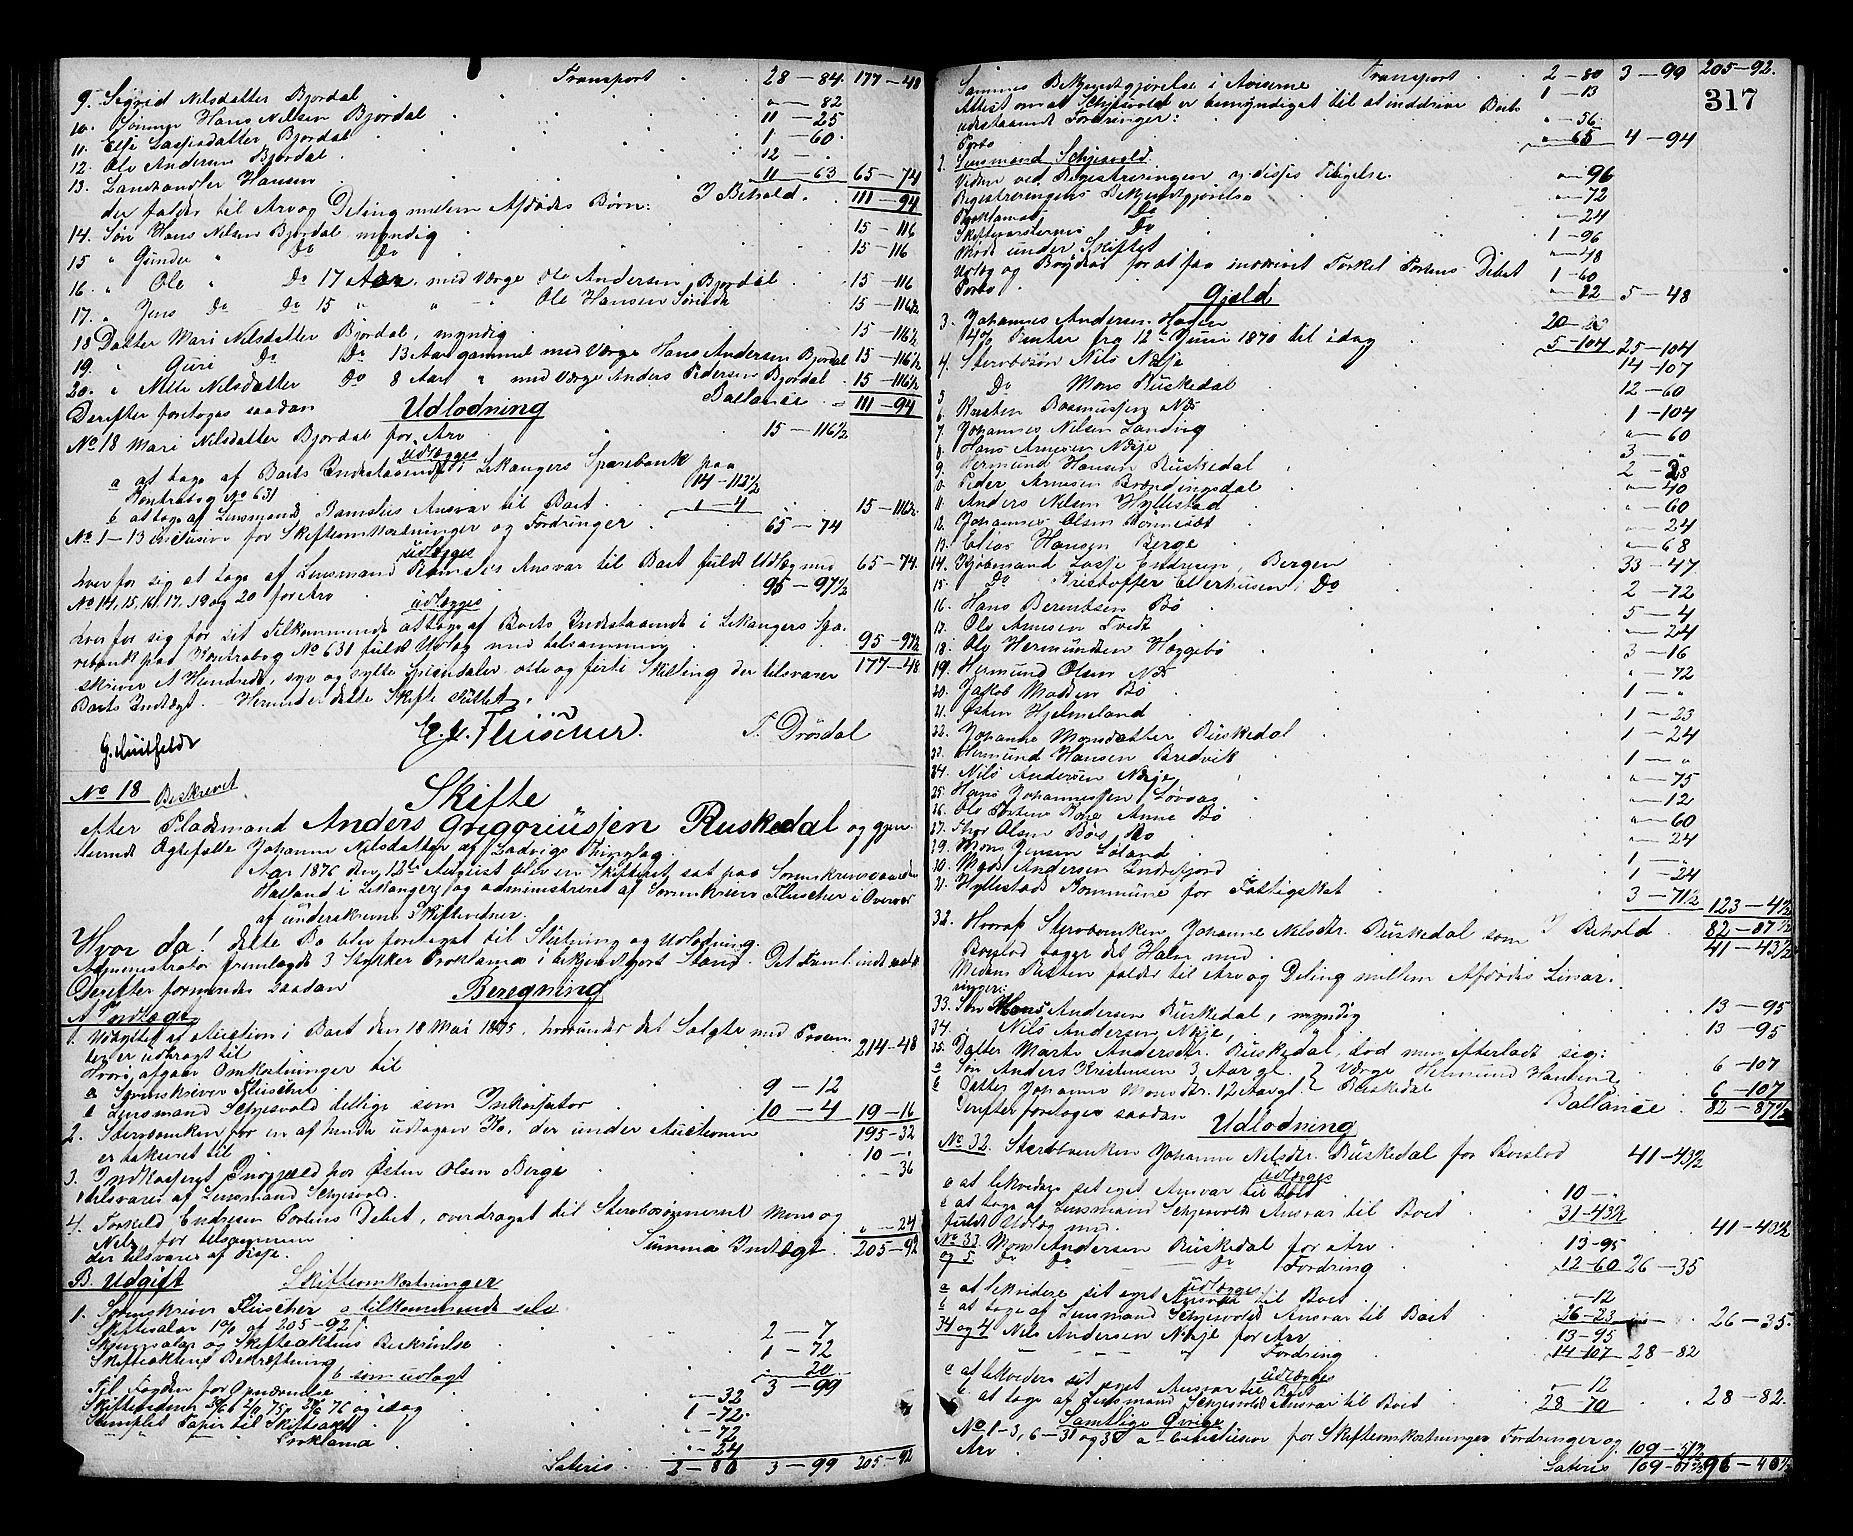 Transport 28 — 84. 177 — 48
9. Sigrid Nilsdatter Bjordal " — 82
10. Hans Nilsen Bjordal 11 — 25
11. Else Lassesdatter Bjordal 1 — 60.
12. Ole Andersen Bjordal 12 — "
13. Landhandler Hansen 11 — 63 65 — 74
I Behold. 111 — 94
der falder til Arv og Deling mellem Afdødes Børn:
14. Søn Hans Nilsen Bjordal myndig 15 — 116
15 " Gunder " Do Do 15 — 116
16. " Ole " Do 17 Aar, med Værge Ole Andersen Bjordal 15 — 116
17. " Jens Do Do 15 " " — " Ole Hansen 15 — 116½
18 Datter Mari Nilsdatter Bjordal, myndig 15 — 116½
19. " Guri Do Do 13 Aar gammel med Værge Hans Andersen Bjordal 15 — 116½
20. " Nilsdatter Do 8 Aar " med Værge Anders Pedersen Bjordal 15 — 116½
Ballance 111 — 94
Derefter foretoges saadan Udlodning
No 18 Mari Nilsdatter Bjordal for Arv 15 — 116½
udlægges
a at tage af Boets Indestaaende i Lekangers Sparebank paa
Kontrabog No 631 14 — 112½
b at tage af Lensmand Ansvar til Boet 1 — 4 15 — 116½
No 1—13 inclusive for Skifteomkostninger og Fordringer 65 — 74
udlægges
hver for sig at tage af Lensmand Ansvar til Boet fuldt Udlæg med 65 — 74.
No 14, 15, 16, 17, 19 og 20 for Arv 95 — 97½
udlægges
hver for sig for sit Tilkommende at tage af Boets Indestaaende i Lekangers Spa-
rebank paa Kontrabog No 631 fuldt Udlæg med tilsammen 95 — 97½
skriver Et Hundrede, syv og sytti Speciedaler, otte og førti Skilling der tilsvarer 177 — 48
Boets Indtægt. — Hermed er dette Skifte sluttet.
G. Huitfeldt Fleischer T. Drösdal
No 18 Beskrevet
Skifte
efter Pladsmand Anders Gregoriussen Ruskedal og gjen-
levende Ægtefælle Johanne Nilsdatter af Ladvigs Thinglag.
Aar 1876 den 12te August blev en Skifteret sat paa Sorenskrivergaarden
i Lekanger, og administreret af Sorenskriver Fleischer i Overvær
af underskrevne Skiftevidner.
Hvor da! dette Bo blev foretaget til Slutning og Udlodning.
Administrator fremlagde 3 Stykker Proklama i bekjendtgjort Stand.
Derefter formeredes saadan Beregning
A Indtægt
1. Udbyttet af Auction i Boet den 18 Mai 1875, hvorunder det Solgte med Procen-
ter er udbragt til 214 — 48
Hvori afgaar Omkostninger til
a Sorenskriver Fleischer 9 — 12
b Lensmand Schjesvold tillige som Inkassator 10 — 4 19 — 16
195 — 32
2. Stervboenken for en af hende udtagen Ko, der under Auctionen
er takseret til 10 — "
3. Indkasseret hos Østen Olsen Berge " — 36
tilsvares af Lensmand Schjesvold.
4. Torkeld Endresen Portens Debet, overdraget til Stervbosønnerne Mons og
Nils, for tilsammen " — 24
der tilsvares af disse. Summa Indtægt. 205 — 92
B. Udgift Skifteomkostninger
1. Sorenskriver Fleischer a tilkommende selv
Skiftesalær 1% af 205 — 92 2 — 7
og Skifteaktens Beskrivelse 1 — 72
Skifteaktens Bekræftning " 20
3 — 99
b som udlagt
Til Fogden for Opnævnelse " — 32
Skiftevidner og idag 1 — 72.
Stemplet Papir til Skifteakt " — 72
Proklama " — 24
Lateris 2 — 80 3 — 99 205 — 92
317
Transport 2 — 80 3 — 99 205 — 92.
Sammes Bekjendtgjørelse i Aviserne 1 — 13
Attest om at Schjesvold er bemyndiget til at inddrive Boets
udestaaende Fordringer: " — 56.
Porto " — 65 4 — 94
2. Lensmand Schjesvold.
Vidner ved Registreringen og disses Tilsigelse " — 96
Registreringens Bekjendtgjørelse " — 72
Proklamas Do " — 24
Do 1 — 96
Møde under Skiftet " — 48
Udlæg og for at faa inddrevet Torkel Portens Debet 1 — 60
Porto " — 12 5 — 48
Gjæld
3. Johannes Andersen Hagen 20 —
4% Renter fra 12te Juni 1870 til idag 5 — 104 25 — 104
4. Stervbosøn Nils Næje 14 — 107
5 Do Mons Ruskedal 12 — 60
6. Rasmussen Næs 1 — 104
7. Johannes Nilsen Landing " — 60
8. Hans Arnesen Næje 3 — "
9. Hermund Hansen Ruskedal 2 — 28
10. Peder Arnesen Brændingsdal " — 40
11. Anders Nilsen Hyllestad " — 60
12. Johannes Olsen " — 24
13. Elias Hansen Berge " — 68
14. Kjøbmand Lasse Endresen, Bergen 33 — 47
15. Do Kristoffer Ellerhusen, Do 2 — 72
16. Hans Berentsen Bø 5 — 4
17. Ole Arnesen Tvedt " — 24
18. Ole Hermundsen Haggebø 3 — 16
19. Hermund Olsen Næs " — 72
20. Jakob Madsen Bø 1 — "
21. Østen Hjelmeland 1 — 23
22. Johanne Monsdatter Ruskedal 1 — 24
23. Hermund Hansen Bredvik 1 — "
24. Nils Andersen Næje " — 75
25. Hans Johannessen Løvaas " — 12
26. Ole Anne Bø " — 60
27. Thor Olsen Bø " — 24
29. Mons Jensen Løland 1 — "
30. Mads Andersen Indrefjord 1 — 24
31. Hyllestads Kommune for Fattigskat 3 — 71½ 123 — 4½
I Behold 82 — 87½
32. Hvoraf Stervboenken, Johanne Nilsdtr. Ruskedal som
Boeslod tager det Halve med 41 — 43½
Medens Resten falder til Arv og Deling mellem Afdødes Livsar-
vinger:
33. Søn Mons Andersen Ruskedal, myndig 13 — 95
34. " Nils Andersen Næje, " 13 — 95
35. Datter Marte Andersdtr. Ruskedal, død men efterladt sig:
a Søn Anders Kristensen 3 Aar gl. } Værge Hermund Hansen 6 — 107
b Datter Johanne Monsdtr. 12 Aar gl. } Ruskedal 6 — 107
Ballance 82 — 87½
Derefter foretoges saadan
Udlodning
No 32. Stervboenken Johanne Nilsdtr. Ruskedal for Boeslod 41 — 43½
udlægges
a at likvidere sit eget Ansvar til Boet 10 — "
b at tage af Lensmand Schjesvolds Ansvar til Boet 31 — 43½
fuldt Udlæg med 41 — 43½
No 33 Mons Andersen Ruskedal for Arv 13 — 95
og 5 Do Do — Do Fordring 12 — 60 26 — 35
udlægges
a at likvidere sit eget Ansvar til Boet " — 12
b at tage af Lensmand Schjesvolds Ansvar til Boet 26 — 23 26 — 35.
34 og 4 Nils Andersen Næje for Arv 13 — 95
Fordring 14 — 107 28 — 82
udlægges
a at likvidere sit eget Ansvar til Boet " — 12
b at tage af Lensmand Schjesvolds Ansvar til Boet 28 — 70 28 — 82.
Samtlige Øvrige
No 1—3, 6—31 og 35 a—b inclusive for Skifteomkostninger Fordringer og
Arv 109 — 51½
Lateris 109 — 51½ 96 — 40½